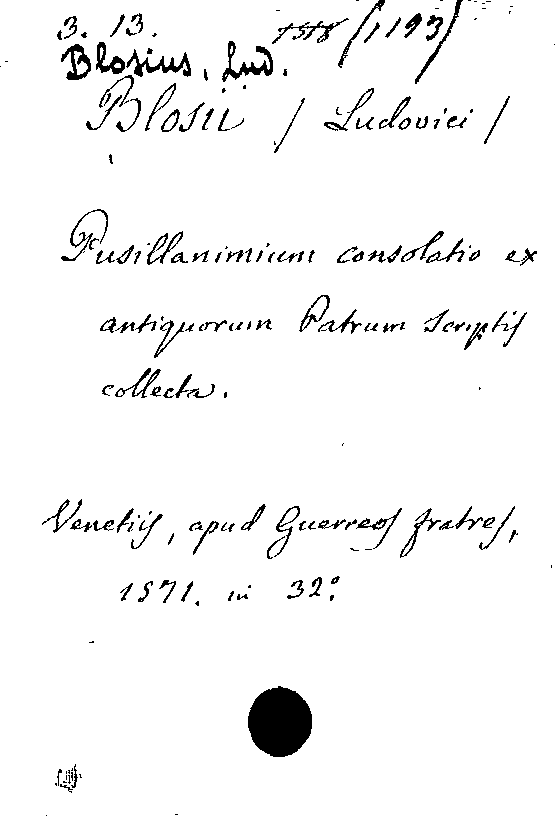 3. 13. 1518 (1193)
Blosius, Lud.
Blosii / Ludovici /
Pusillanimium consolatio ex
antiquorum Patrum scriptis
collecta.
Venetiis, apud Guerreos fratres,
1571. in 32°.